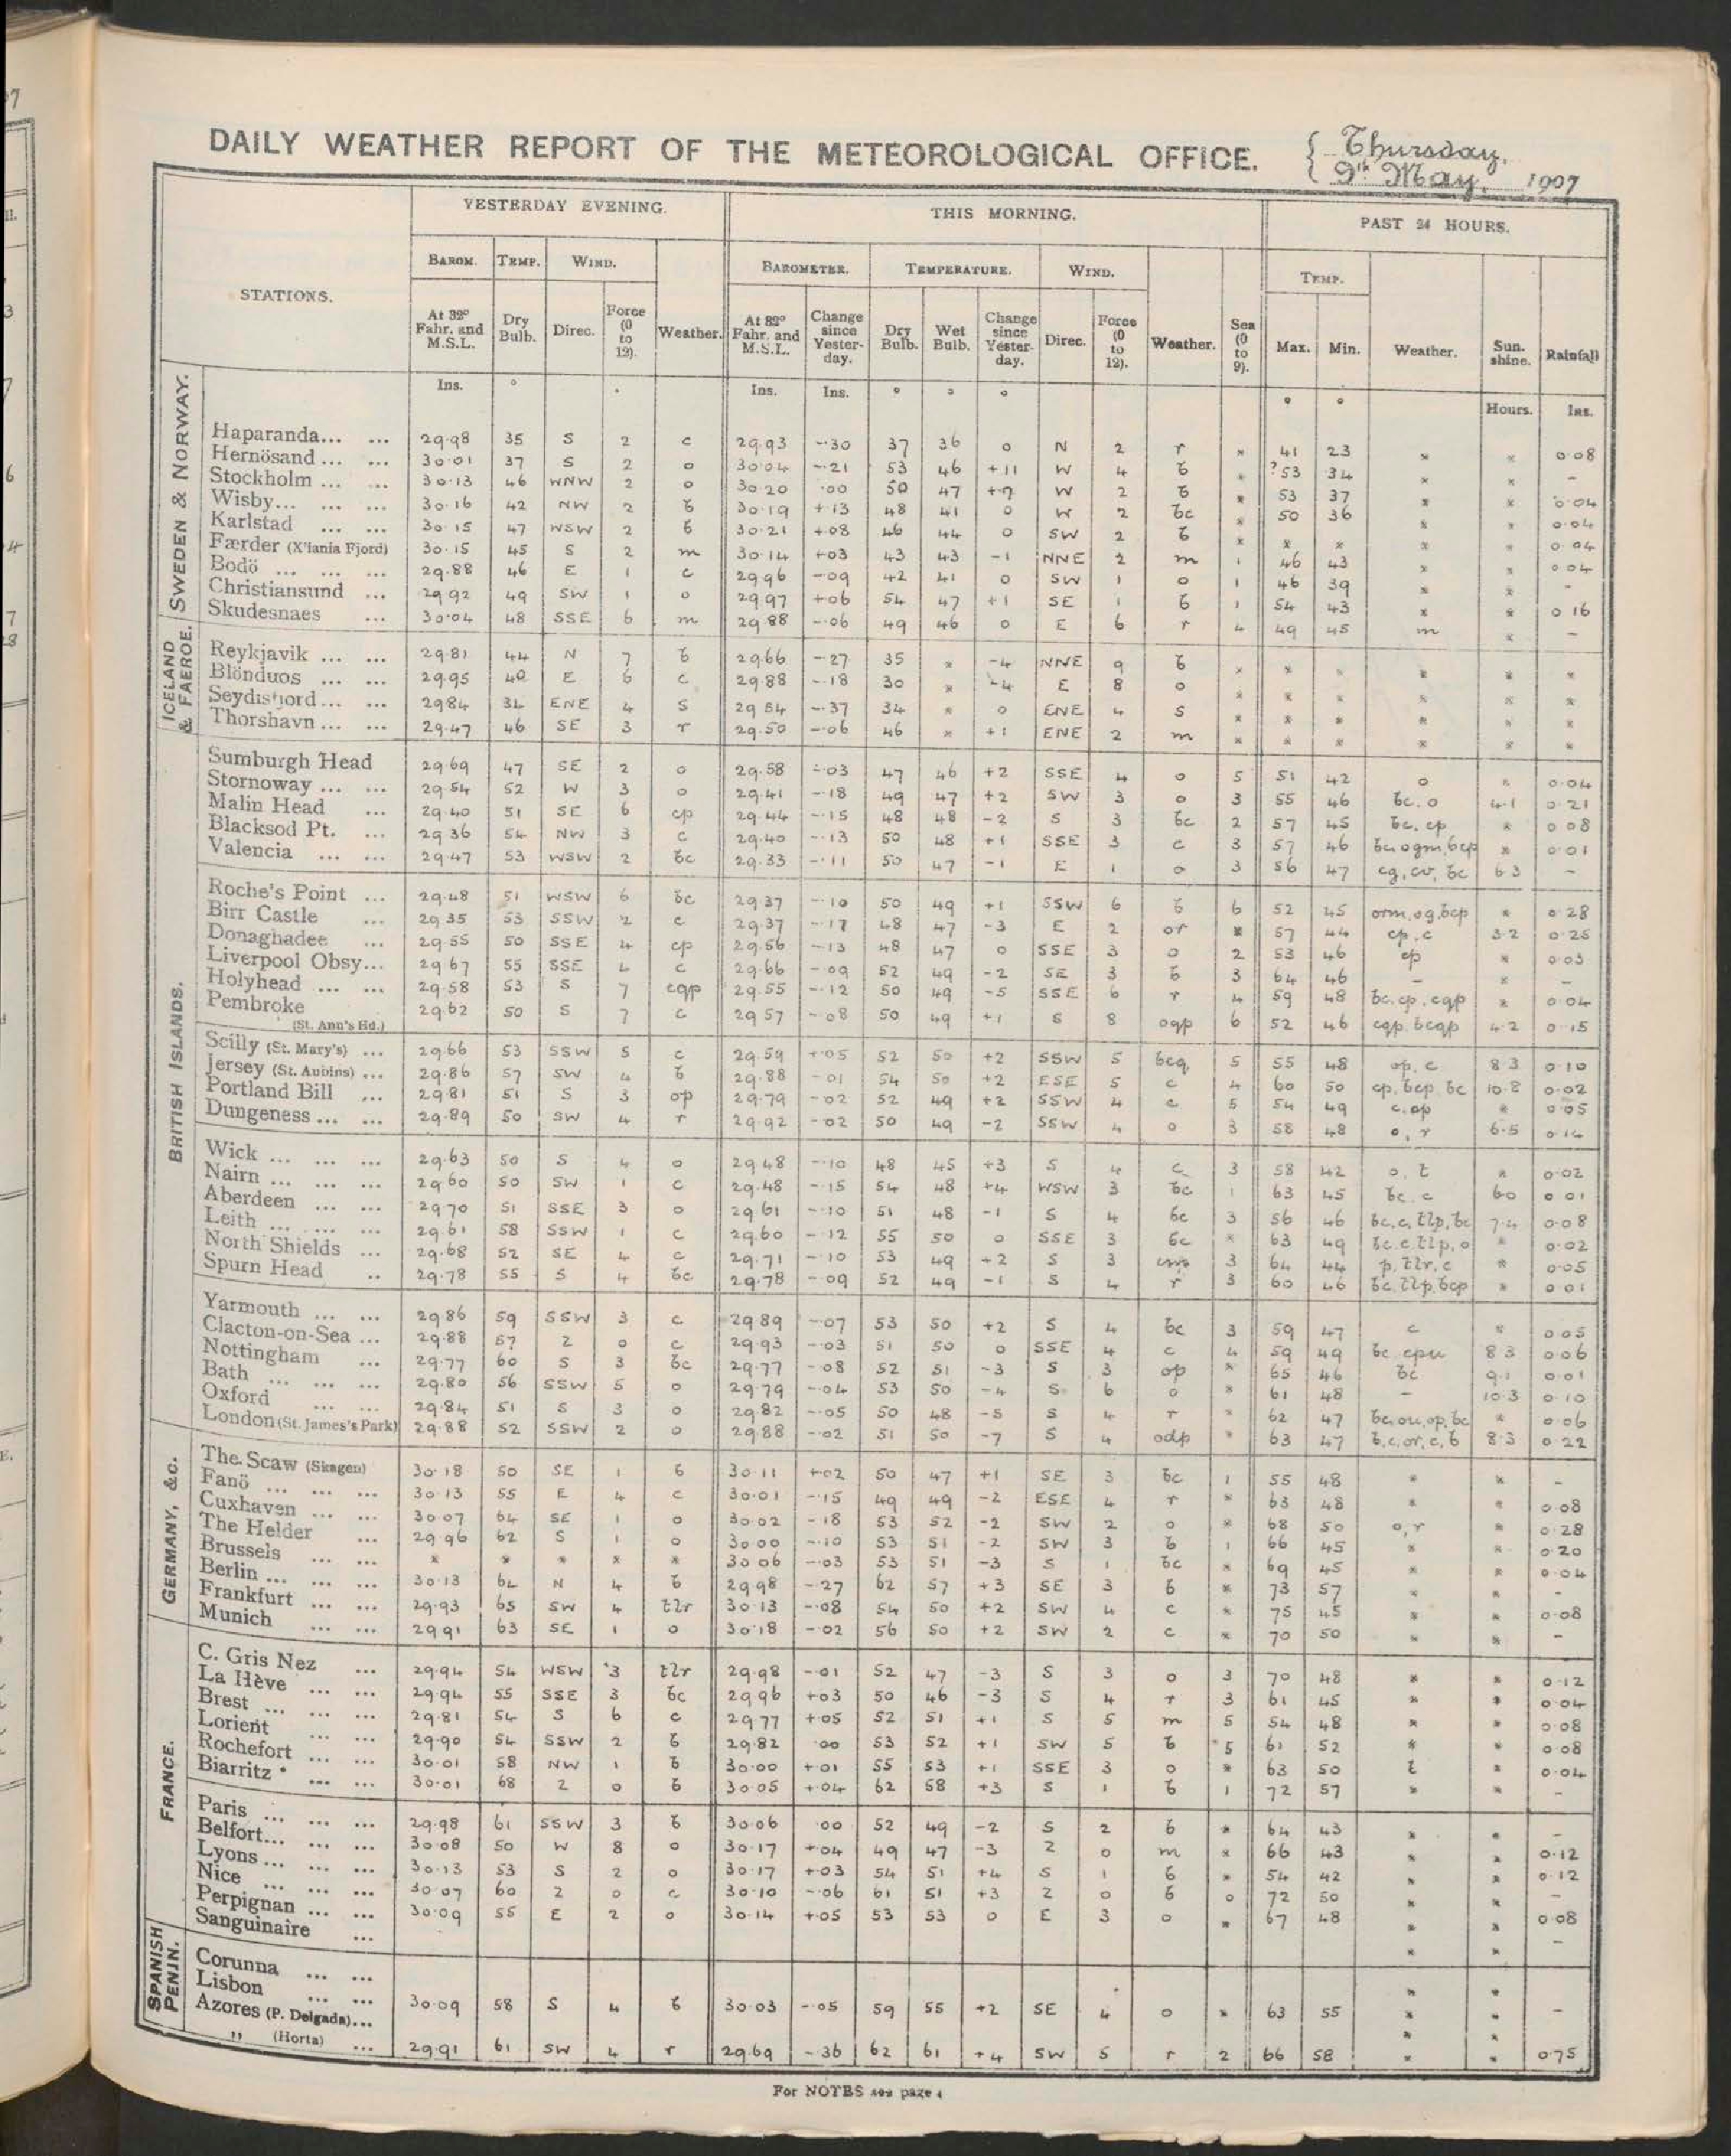 DAILY WEATHER REPORT OF THE METEOROLOGICAL OFFICE. { Thursday, 9th May, 1907
YESTERDAY EVENING. THIS MORNING. PAST 24 HOURS.
STATIONS. BAROM. TEMP. WIND. BAROMETER. TEMPERATURE. WIND. TEMP.
At 32° Fahr. and M.S.L. Dry Bulb. Direc. Force (0 to 12). Weather. At 32° Fahr. and M.S.L. Change since Yester-day. Dry Bulb. Wet Bulb. Change since Yester-day. Direc. Force (0 to 12). Weather. Sea (0 to 9). Max. Min. Weather. Sun-shine. Rainfall
Ins. ° Ins. Ins. ° ° ° ° ° Hours. Ins.
SWEDEN & NORWAY.
Haparanda... ... 29.98 35 S 2 c 29.93 -.30 37 36 0 N 2 r * 41 23 * * 0.08
Hernösand ... ... 30.01 37 S 2 o 30.04 -.21 53 46 +11 W 4 b * ?53 34 * * -
Stockholm ... ... 30.13 46 WNW 2 o 30.20 .00 50 47 W 2 b * 53 37 * * 0.04
Wisby... ... ... 30.16 42 NW 2 b 30.19 +.13 48 41 0 W 2 bc * 50 36 * * 0.04
Karlstad ... ... 30.15 47 WSW 2 b 30.21 +.08 46 44 0 SW 2 b * * * * * 0.04
Færder (X'iania Fjord) 30.15 45 S 2 m 30.14 +.03 43 43 -1 NNE 2 m 1 46 43 * * 0.04
Bodö ... ... ... 29.88 46 E 1 c 29.96 -.09 42 41 0 SW 1 o 1 46 39 * * -
Christiansund ... 29.92 49 SW 1 o 29.97 +.06 54 47 +1 SE 1 b 1 54 43 * * 0.16
Skudesnaes ... 30.04 48 SSE 6 m 29.88 -.06 49 46 0 E 6 r 4 49 45 m * -
ICELAND & FAEROE.
Reykjavik ... ... 29.81 44 N 7 b 29.66 -.27 35 * -4 NNE 9 b * * * * * *
Blönduos ... ... 29.95 40 E 6 c 29.88 -.18 30 * -4 E 8 o * * * * * *
Seydisfjord... ... 29.84 34 ENE 4 s 29.54 -.37 34 * 0 ENE 4 s * * * * * *
Thorshavn ... ... 29.47 46 SE 3 r 29.50 -.06 46 * +1 ENE 2 m * * * * * *
BRITISH ISLANDS.
Sumburgh Head 29.69 47 SE 2 o 29.58 -.03 47 46 +2 SSE 4 o 5 51 42 o * 0.04
Stornoway ... ... 29.54 52 W 3 o 29.41 -.18 49 47 +2 SW 3 o 3 55 46 bc.o 4.1 0.21
Malin Head ... 29.40 51 SE 6 cp 29.44 -.15 48 48 -2 S 3 bc 2 57 45 bc.cp * 0.08
Blacksod Pt. ... 29.36 54 NW 3 c 29.40 -.13 50 48 +1 SSE 3 c 3 57 46 * 0.01
Valencia ... ... 29.47 53 WSW 2 bc 29.33 -.11 50 47 -1 E 1 o 3 56 47 cg, cv, bc 6.3 -
Roche's Point ... 29.48 51 WSW 6 bc 29.37 -.10 50 49 +1 SSW 6 b 6 52 45 orm, og, bcp * 0.28
Birr Castle ... 29.35 53 SSW 2 c 29.37 -.17 48 47 -3 E 2 or * 57 44 cp, c 3.2 0.25
Donaghadee ... 29.55 50 SSE 4 cp 29.56 -.13 48 47 0 SSE 3 o 2 53 46 cp * 0.03
Liverpool Obsy... 29.67 55 SSE 4 c 29.66 -.09 52 49 -2 SE 3 b 3 64 46 - * -
Holyhead ... ... 29.58 53 S 7 cqp 29.55 -.12 50 49 -5 SSE 6 r 4 59 48 bc.cp, cqp * 0.04
Pembroke (St. Ann's Hd.) 29.62 50 S 7 c 29.57 -.08 50 49 +1 S 8 oqp 6 52 46 cqp, bcqp 4.2 0.15
Scilly (St. Mary's) ... 29.66 53 SSW 5 c 29.59 +.05 52 50 +2 SSW 5 bcq 5 55 48 op, c 8.3 0.10
Jersey (St. Aubins) ... 29.86 57 SW 4 b 29.88 -.01 54 50 +2 ESE 5 c 4 60 50 cp, bcp, bc 10.8 0.02
Portland Bill ... 29.81 51 S 3 op 29.79 -.02 52 49 +2 SSW 4 c 5 54 49 c.op * 0.05
Dungeness ... ... 29.89 50 SW 4 r 29.92 -.02 50 49 -2 SSW 4 o 3 58 48 o, r 6.5 0.14
Wick ... ... ... 29.63 50 S 4 o 29.48 -.10 48 45 +3 S 4 c 3 58 42 o, t * 0.02
Nairn ... ... ... 29.60 50 SW 1 c 29.48 -.15 54 48 +4 WSW 3 bc 1 63 45 bc.c 6.0 0.01
Aberdeen ... ... 29.70 51 SSE 3 o 29.61 -.10 51 48 -1 S 4 bc 3 56 46 bc,c,tlp,bc 7.4 0.08
Leith ... ... ... 29.61 58 SSW 1 c 29.60 -.12 55 50 0 SSE 3 bc * 63 49 bc.c.tlp,o * 0.02
North Shields ... 29.68 52 SE 4 c 29.71 -.10 53 49 +2 S 3 3 64 44 p, tlr, c * 0.05
Spurn Head .. 29.78 55 S 4 bc 29.78 -.09 52 49 -1 S 4 r 3 60 46 bc.tlp.bcp * 0.01
Yarmouth ... ... 29.86 59 SSW 3 c 29.89 -.07 53 50 +2 S 4 bc 3 59 47 c * 0.05
Clacton-on-Sea ... 29.88 57 Z 0 c 29.93 -.03 51 50 0 SSE 4 c 4 59 49 bc cpu 8.3 0.06
Nottingham ... 29.77 60 S 3 bc 29.77 -.08 52 51 -3 S 3 op * 65 46 bc 9.1 0.01
Bath ... ... ... 29.80 56 SSW 5 o 29.79 -.04 53 50 -4 S 6 o * 61 48 - 10.3 0.10
Oxford ... ... 29.84 51 S 3 o 29.82 -.05 50 48 -5 S 4 r * 62 47 bc, ou, op, bc * 0.06
London (St. James's Park) 29.88 52 SSW 2 o 29.88 -.02 51 50 -7 S 4 odp * 63 47 b, c, or, c, b 8.3 0.22
GERMANY, &c.
The Scaw (Skagen) 30.18 50 SE 1 b 30.11 +.02 50 47 +1 SE 3 bc 1 55 48 * * -
Fanö ... ... ... 30.13 55 E 4 c 30.01 -.15 49 49 -2 ESE 4 r * 63 48 * * 0.08
Cuxhaven ... ... 30.07 64 SE 1 o 30.02 -.18 53 52 -2 SW 2 o * 68 50 o, r * 0.28
The Helder ... 29.96 62 S 1 o 30.00 -.10 53 51 -2 SW 3 b 1 66 45 * * 0.20
Brussels ... ... * * * * * 30.06 -.03 53 51 -3 S 1 bc * 69 45 * * 0.04
Berlin ... ... ... 30.13 64 N 4 b 29.98 -.27 62 57 +3 SE 3 b * 73 57 * *
Frankfurt ... ... 29.93 65 SW 4 tlr 30.13 -.08 54 50 +2 SW 4 c * 75 45 * * 0.08
Munich ... ... 29.91 63 SE 1 o 30.18 -.02 56 50 +2 SW 2 c * 70 50 * * -
FRANCE.
C. Gris Nez ... 29.94 54 WSW 3 tlr 29.98 -.01 52 47 -3 S 3 o 3 70 48 * * 0.12
La Hève ... ... 29.94 55 SSE 3 bc 29.96 +.03 50 46 -3 S 4 r 3 61 45 * * 0.04
Brest ... ... ... 29.81 54 S 6 c 29.77 +.05 52 51 +1 S 5 m 5 54 48 * * 0.08
Lorient ... ... 29.90 54 SSW 2 b 29.82 .00 53 52 +1 SW 5 b 5 61 52 * * 0.08
Rochefort ... ... 30.01 58 NW 1 b 30.00 +.01 55 53 +1 SSE 3 o * 63 50 t * 0.04
Biarritz ... ... 30.01 68 Z 0 b 30.05 +.04 62 58 +3 S 1 b 1 72 57 * * -
Paris ... ... ... 29.98 61 SSW 3 b 30.06 .00 52 49 -2 S 2 b * 64 43 * * -
Belfort... ... ... 30.08 50 W 8 o 30.17 +.04 49 47 -3 Z 0 m * 66 43 * * 0.12
Lyons ... ... ... 30.13 53 S 2 o 30.17 +.03 54 51 +4 S 1 b * 54 42 * * 0.12
Nice ... ... ... 30.07 60 Z 0 c 30.10 -.06 61 51 +3 Z 0 b 0 72 50 * * -
Perpignan ... ... 30.09 55 E 2 o 30.14 +.05 53 53 0 E 3 o * 67 48 * * 0.08
Sanguinaire ... * * -
SPANISH PENIN.
Corunna ... ... * *
Lisbon ... ... 30.09 58 S 4 b 30.03 -.05 59 55 +2 SE 4 o * 63 55 * * -
Azores (P. Delgada)... * *
" (Horta) ... 29.91 61 SW 4 r 29.69 -.36 62 61 +4 SW 5 r 2 66 58 * * 0.75
For NOTES see page 4